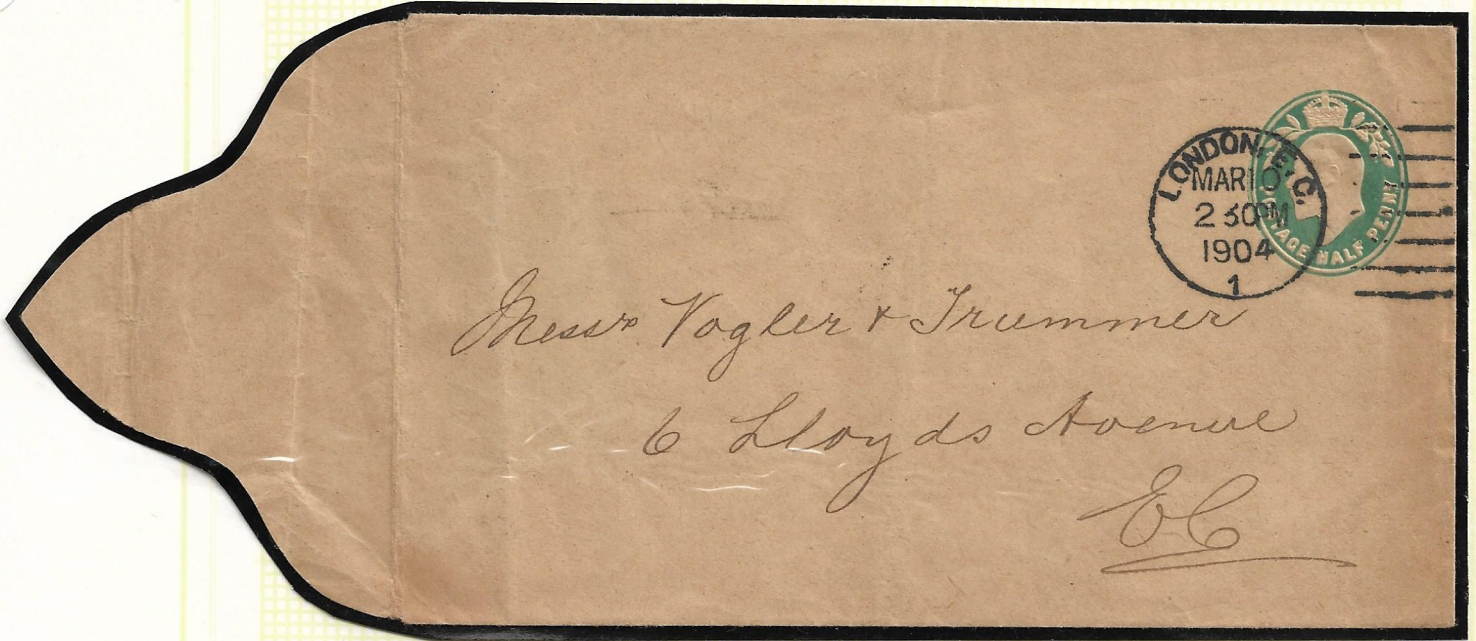 LONDON, E.C.
MAR 10
2 30 PM
1904
1
POSTAGE HALF PENNY
Messrs Vogler & Trummer
6 Lloyds Avenue
EC